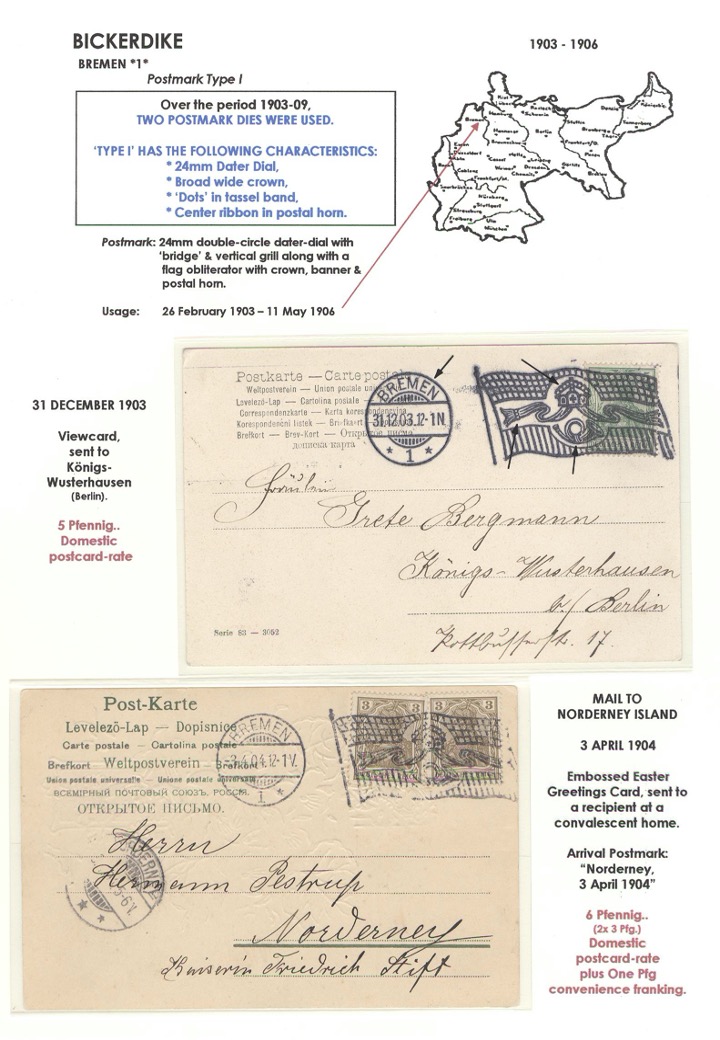 BICKERDIKE
1903 - 1906
BREMEN *1*
Postmark Type I
Over the period 1903-09,
TWO POSTMARK DIES WERE USED.
‘TYPE I’ HAS THE FOLLOWING CHARACTERISTICS:
* 24mm Dater Dial,
* Broad wide crown,
* ‘Dots’ in tassel band,
* Center ribbon in postal horn.
Postmark: 24mm double-circle dater-dial with
‘bridge’ & vertical grill along with a
flag obliterator with crown, banner &
postal horn.
Usage: 26 February 1903 – 11 May 1906
31 DECEMBER 1903
Viewcard,
sent to
Königs-
Wusterhausen
(Berlin).
5 Pfennig..
Domestic
postcard-rate
Postkarte — Carte postale
Weltpostverein — Union postale
Levelező-Lap — Cartolina postale
Correspondenzkarte — Karta korespondencyjna
Korespondenční listek — Briefkart
Brefkort — Brev-Kort — Открытое письмо
дописна карта
BREMEN
31.12.03.12-1N.
* 1 *
Fräulein
Grete Bergmann
Königs-Wusterhausen
b./ Berlin
Kottbusserstr. 17.
Serie 63 — 3052
Post-Karte
Levelező-Lap — Dopisnice
Carte postale — Cartolina postale
Brefkort — Weltpostverein — Brefkort
Union postale universelle — Unione postale universale
ВСЕМІРНЫЙ ПОЧТОВЫЙ СОЮЗЪ. РОССІЯ.
ОТКРЫТОЕ ПИСЬМО.
BREMEN
3.4.04.12-1V.
1 *
3 3 3 3
NORDERNEY
5-6V.
Herrn
Hermann Pestrup
Norderney
Kaiserin Friedrich Stift
MAIL TO
NORDERNEY ISLAND
3 APRIL 1904
Embossed Easter
Greetings Card, sent to
a recipient at a
convalescent home.
Arrival Postmark:
“Norderney,
3 April 1904”
6 Pfennig..
(2x 3 Pfg.)
Domestic
postcard-rate
plus One Pfg
convenience franking.